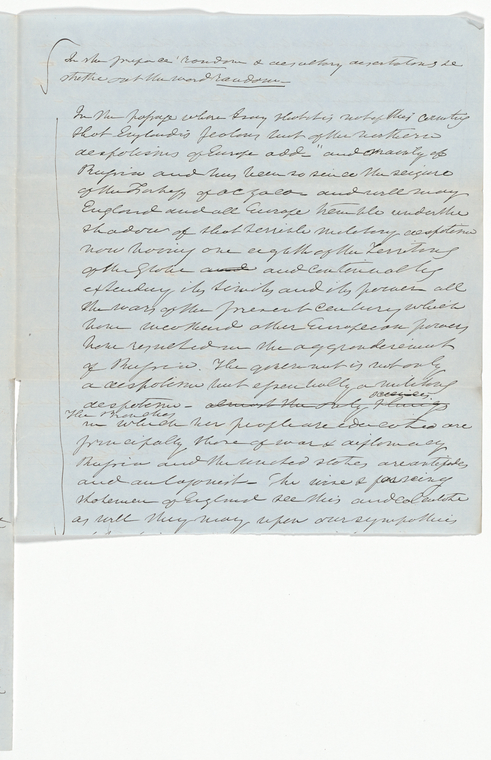 In the preface "random & desultory dissertations" be
strike out the word random
In the passage where I say that it is not of this country
that England is jealous but of the northern
despotisms of Europe add - "and mainly of
Russia and has been so since the seizure
of the Fortress of and well may
England and all Europe tremble under the
shadow of that terrible military despotism
now having one eighth of the Territory
of the Globe and and continually
extending its limits and its power all
the wars of the present century which
have weakened other European powers
have resulted in the aggrandizement
of Russia. The government is not only
a despotism but essentially a military
despotism - almost the only
The Branches
in which her people are educated are
principally those of war & diplomacy
Russia and the United States are antipodes
and antagonist - The wise &
statesmen of England see this and calculate
as well they may, upon our sympathies